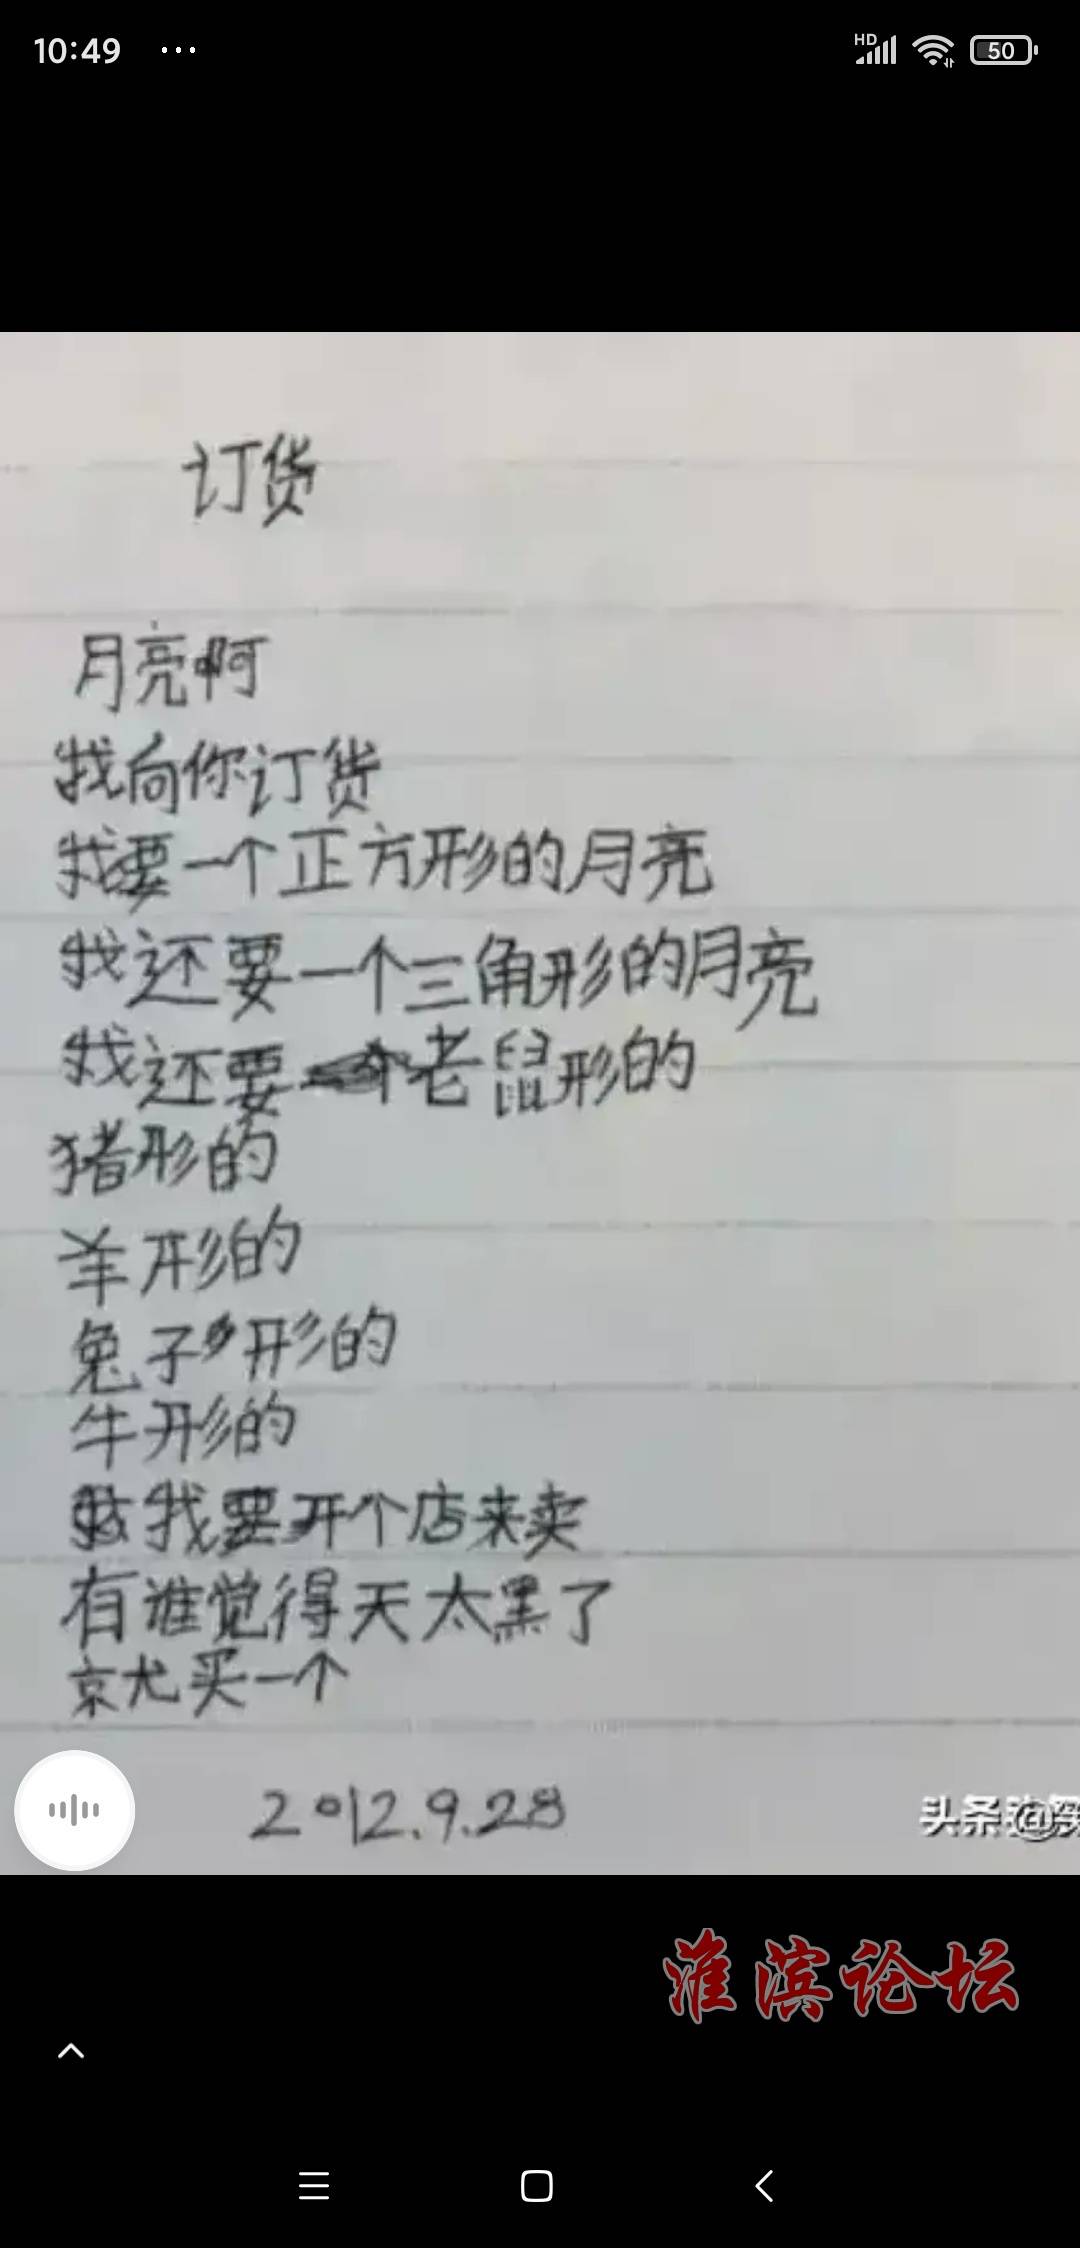 10:49 ...
HD 50
订货
月亮啊
我向你订货
我要一个正方形的月亮
我还要一个三角形的月亮
我还要老鼠形的
猪形的
羊形的
兔子形的
牛形的
我要开个店来卖
有谁觉得天太黑了
就买一个
2012.9.28
头条@
淮滨论坛